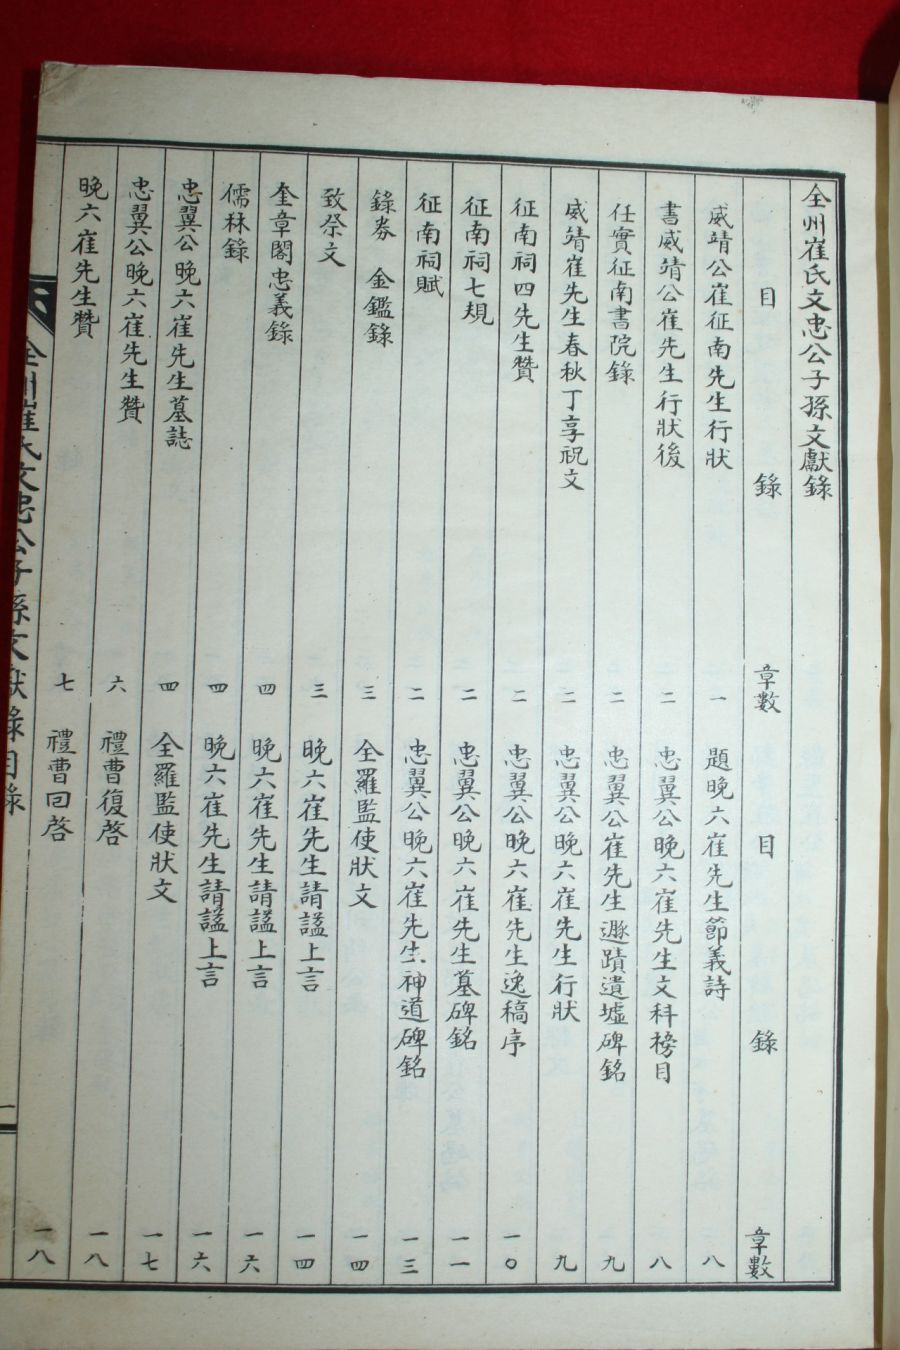 全州崔氏文忠公子孫文獻錄
目 錄 章數 目 錄 章數
威靖公崔征南先生行狀 一 題晩六崔先生節義詩 八
書威靖公崔先生行狀後 二 忠翼公晩六崔先生文科榜目 八
任實征南書院錄 二 忠翼公崔先生遯蹟遺墟碑銘 九
威靖崔先生春秋丁享祝文 二 忠翼公晩六崔先生行狀 九
征南祠四先生贊 二 忠翼公晩六崔先生逸稿序 一〇
征南祠七規 二 忠翼公晩六崔先生墓碑銘 一一
征南祠賦 二 忠翼公晩六崔先生神道碑銘 一三
錄券 金鑑錄 三 全羅監使狀文 一四
致祭文 三 晩六崔先生請謚上言 一四
奎章閣忠義錄 四 晩六崔先生請謚上言 一六
儒林錄 四 晩六崔先生請謚上言 一六
忠翼公晩六崔先生墓誌 四 全羅監使狀文 一七
忠翼公晩六崔先生贊 六 禮曹復啓 一八
晩六崔先生贊 七 禮曹回啓 一八
全州崔氏文忠公子孫文獻錄目錄
一